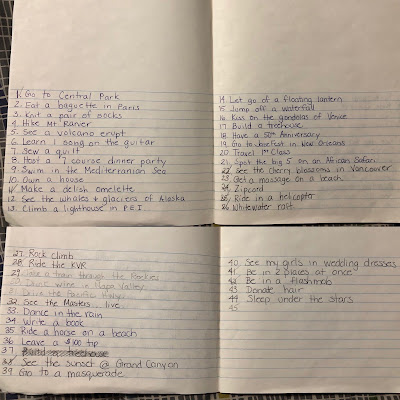 1. Go to Central Park
2. Eat a baguette in Paris
3. Knit a pair of socks
4. Hike Mt Ranier
5. See a volcano erupt
6. Learn 1 song on the guitar
7. Sew a quilt
8. Host a 7 course dinner party
9. Swim in the Mediterranean Sea
10. Own a house
11. Make a delish omelette
12. See the whales + glaciers of Alaska
13. Climb a lighthouse in P.E.I.
14. Let go of a floating lantern
15. Jump off a waterfall
16. Kiss on the gondolas of Venice
17. Build a treehouse
18. Have a 50th Anniversary
19. Go to Jazzfest in New Orleans
20. Travel 1st Class
21. Spot the big 5 on an African Safari
22. See the Cherry blossoms in Vancouver
23. Get a massage on a beach
24. Zipcord
25. Ride in a helicopter
26. Whitewater raft
27. Rock Climb
28. Ride the KVR
29. Take a train through the Rockies
30. Drink wine in Napa Valley
31. Drive the Pacific Hwy
32. See the Masters... live
33. Dance in the rain
34. Write a book
35. Ride a horse on a beach
36. Leave a $100 tip
37. Build a treehouse
38. See the sunset @ Grand Canyon
39. Go to a masquerade
40. See my girls in wedding dresses
41. Be in 2 places at once
42. Be in a flashmob
43. Donate hair
44. Sleep under the stars
45.